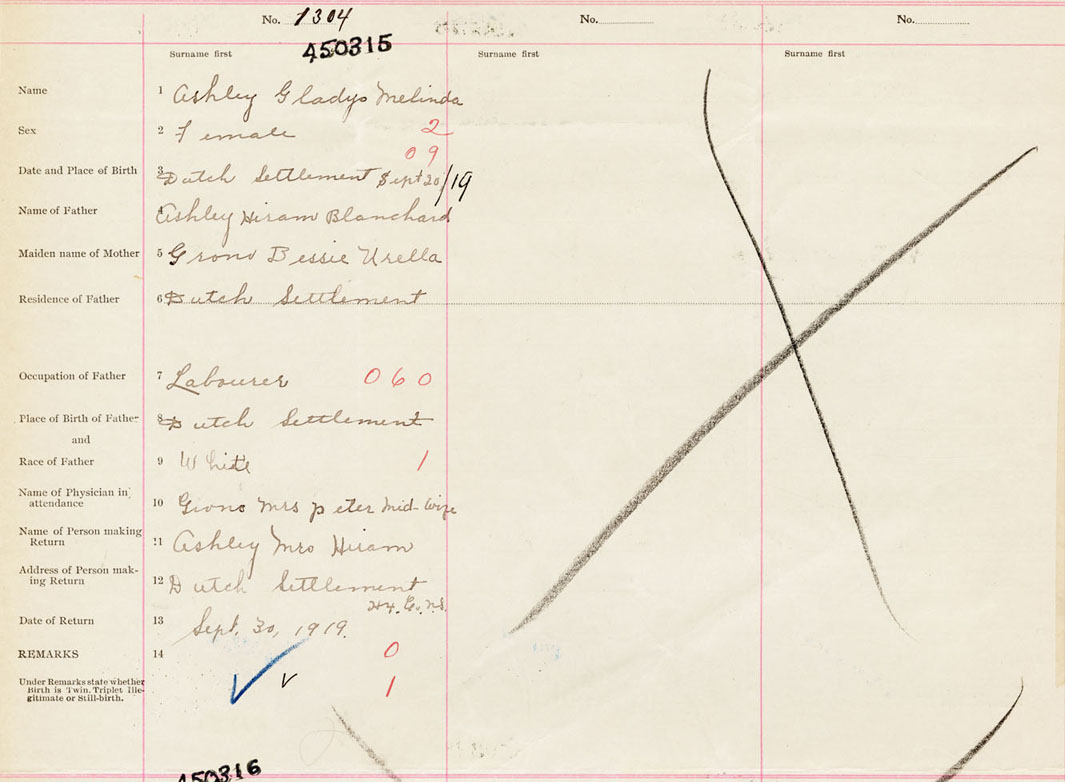 No. 1304 No. No.
450315
Surname first Surname first Surname first
Name 1 Ashley Gladys Melinda
Sex 2 Female 2
09
Date and Place of Birth 3 Dutch Settlement Sept 20/19
Name of Father 4 Ashley Hiram Blanchard
Maiden name of Mother 5 Grono Bessie Urella
Residence of Father 6 Dutch Settlement
Occupation of Father 7 Labourer 060
Place of Birth of Father 8 Dutch Settlement
and
Race of Father 9 White 1
Name of Physician in
attendance 10 Grono Mrs Peter Mid-Wife
Name of Person making
Return 11 Ashley Mrs Hiram
Address of Person mak-
ing Return 12 Dutch Settlement
Hx. Co. N.S.
Date of Return 13 Sept. 30, 1919.
REMARKS 14 0
Under Remarks state whether
Birth is Twin, Triplet, Ille-
gitimate or Still-birth. 1
450316